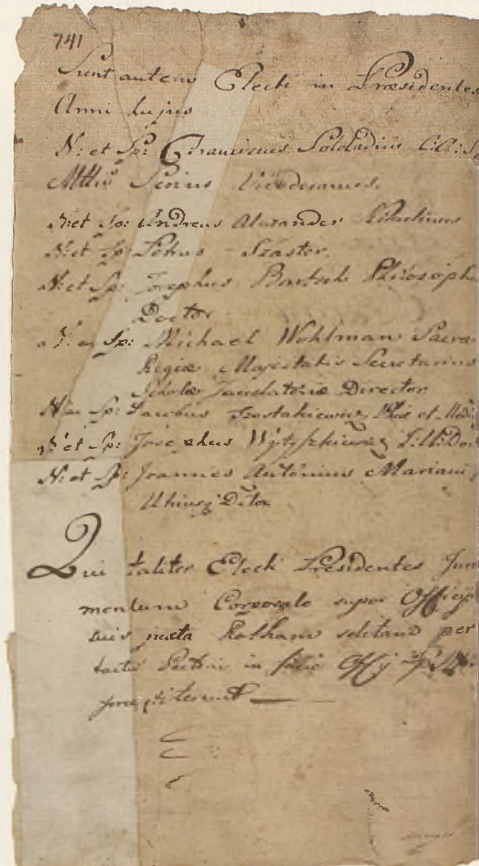 741
Sunt autem Electi in Præsidentes
Anni hujus
N: et Sp: Franciscus Soldadius
Mttis
N: et Sp: Andreas Alexander
N: et Sp: Petrus - Szaster.
N: et Sp: Josephus Bartsch Philosophi
Doctor
N: et Sp: Michael Wohlman Sacræ
Regiæ Majestatis Secretarius
Scholæ Director
N: et Sp: Jacobus Szostakiewicz Phiæ et
N: et Sp: Josephus
N: et Sp: Joannes Antonius Mariani
Utriusq Dctor
Qui taliter Electi Præsidentes Jura
mentum Corporale super Officijs
suis juxta Rotham solitam per
in